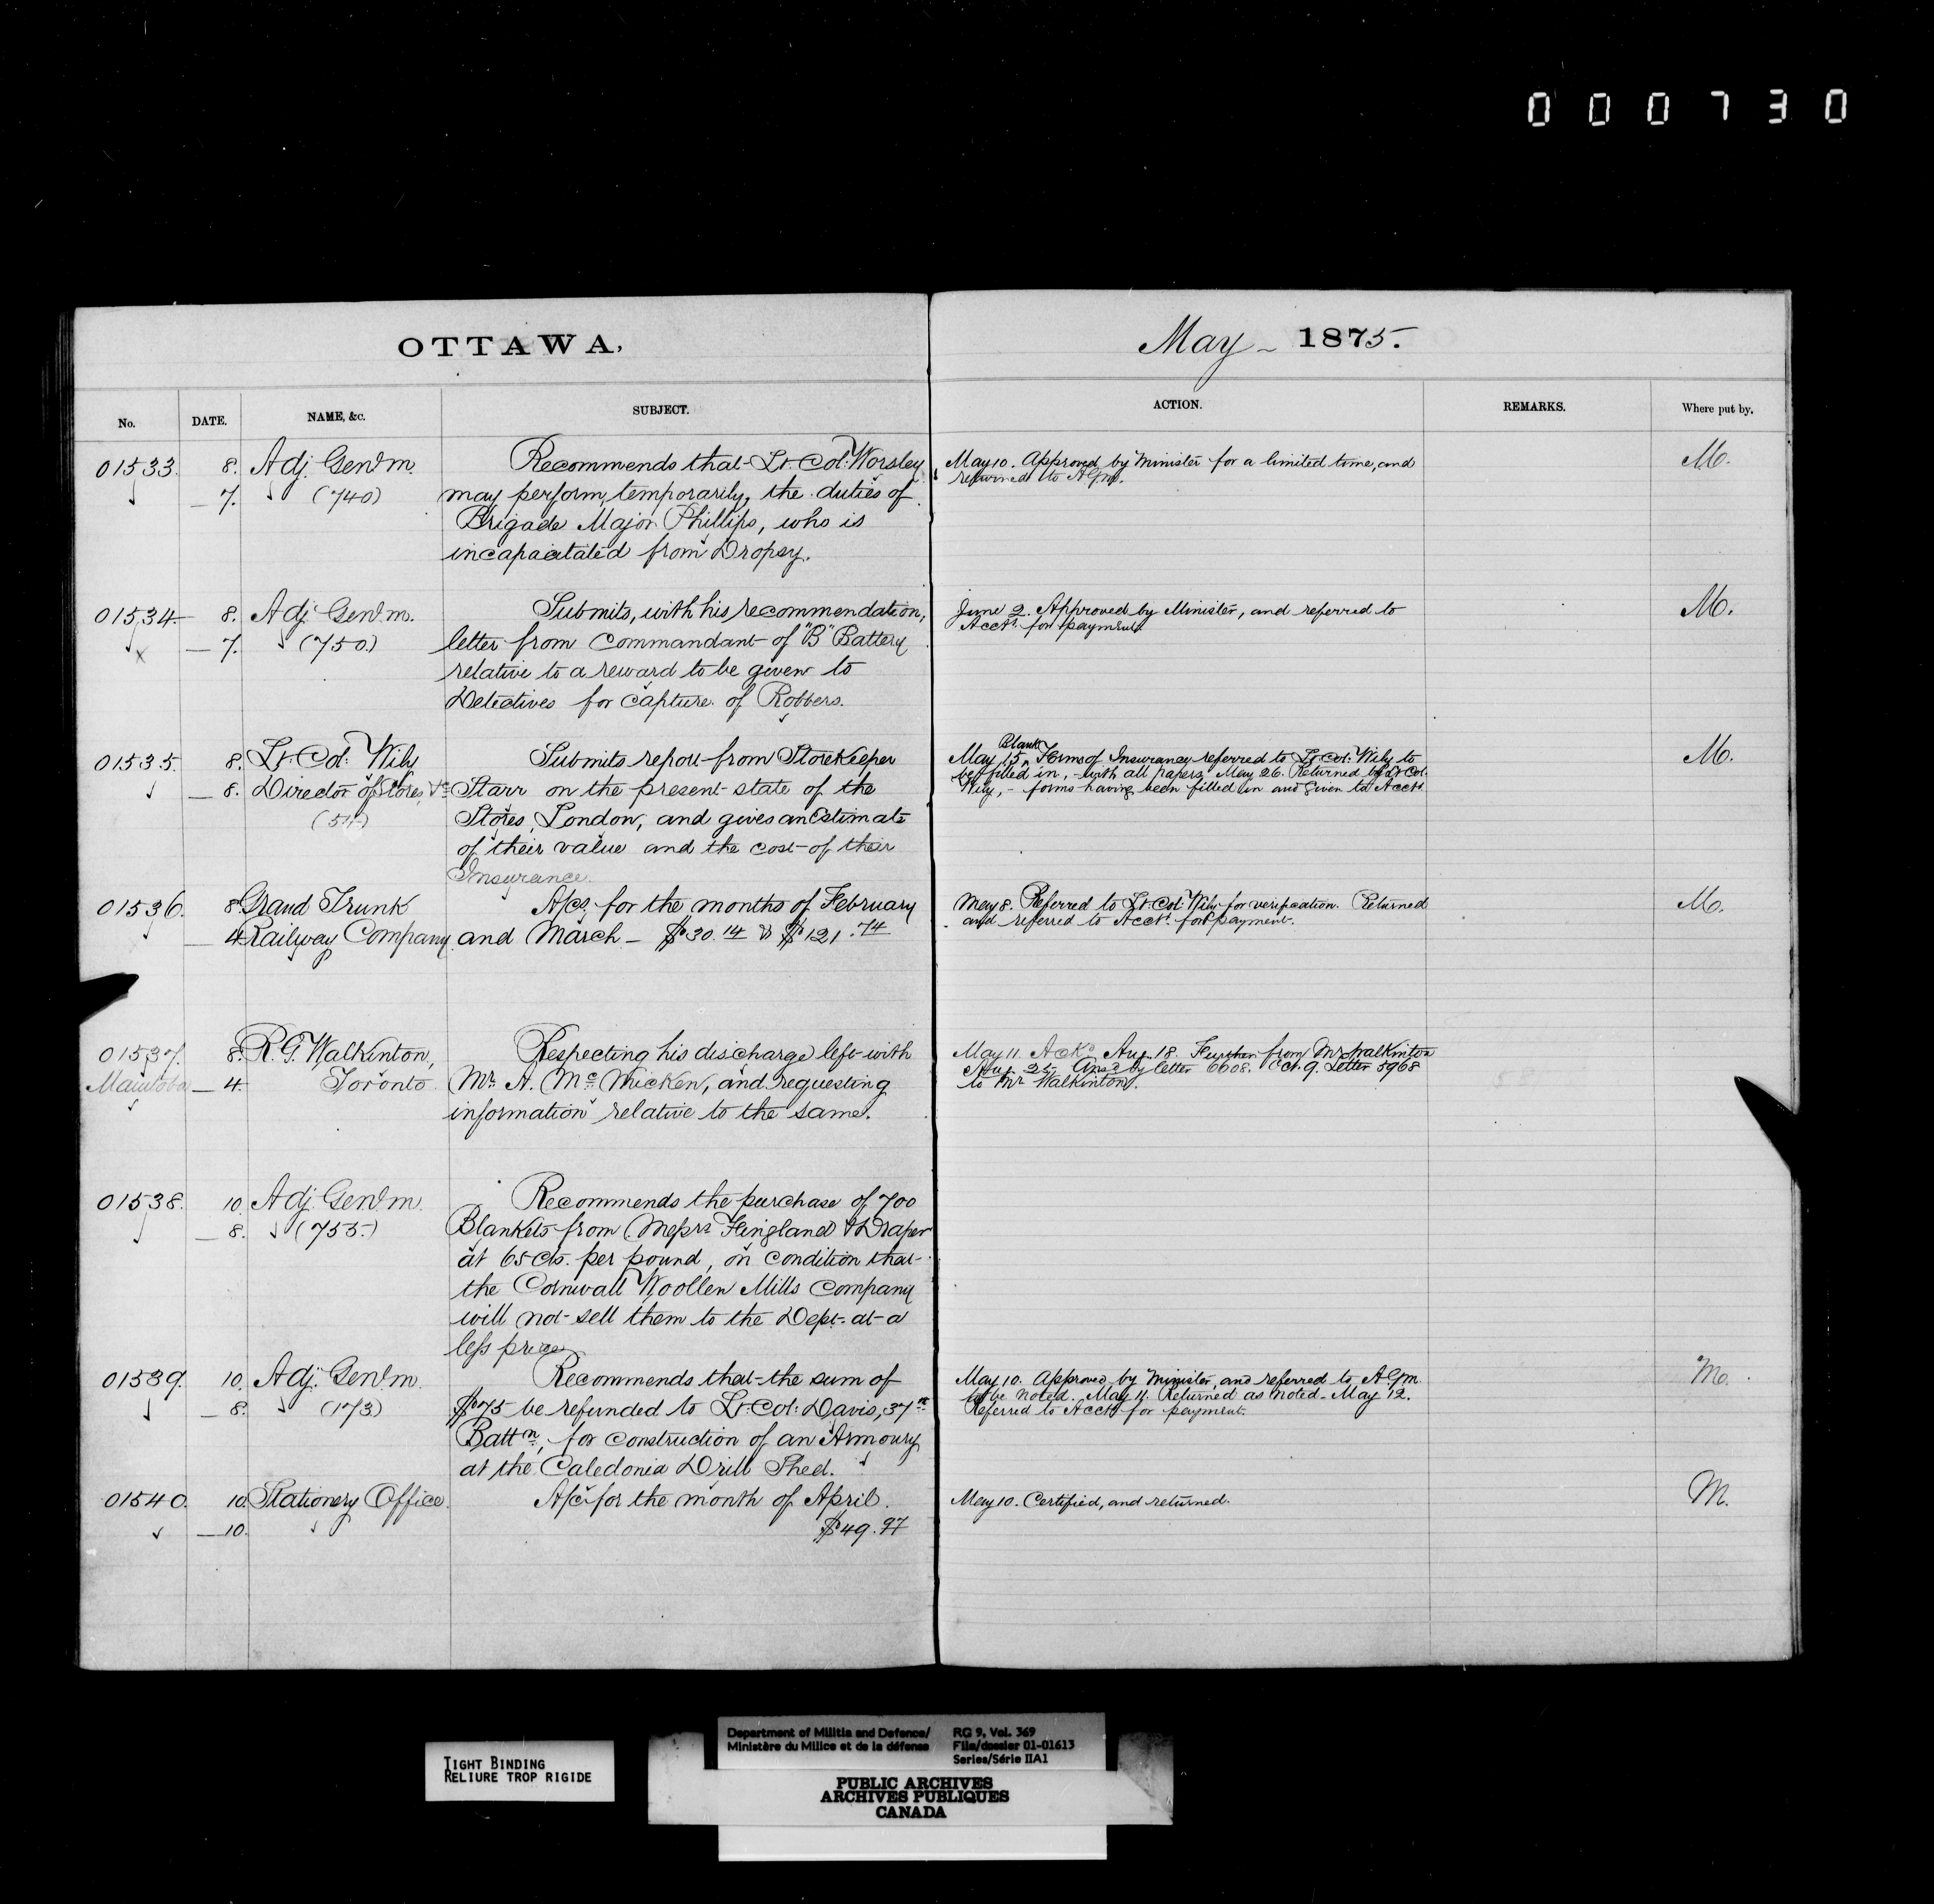 000730
OTTAWA,
May - 1875.
No. DATE. NAME, &c. SUBJECT. ACTION. REMARKS. Where put by.
01533. 8. Adj. Genl. M. Recommends that Lt. Col: Worsley May 10. Approved by Minister for a limited time, and M.
— 7. (740) may perform, temporarily, the duties of returned to AGM.
Brigade Major Phillips, who is
incapacitated from Dropsy.
01534 8. Adj. Genl. M. Submits, with his recommendation, June 2. Approved by Minister, and referred to M.
x — 7. (750.) letter from Commandant of "B" Battery Acct. for payment.
relative to a reward to be given to
Detectives for capture of Robbers.
01535. 8. Lt. Col: Wily Submits report from Storekeeper May 15, Blank Forms of Insurance referred to Lt. Col: Wily to M.
— 8. Director of Stores, &c Starr on the present state of the be filled in, - with all papers. May 26. Returned by Lt. Col.
Stores, London, and gives an Estimate Wily, - forms having been filled in and given to Acct.
of their value and the cost of their
Insurance.
01536. 8. Grand Trunk A/cs. for the months of February May 8. Referred to Lt. Col: Wily for verification. Returned M.
— 4. Railway Company. and March — $30.14 & $121.74 and referred to Acct. for payment.
01537. 8. R. G. Walkinton, Respecting his discharge left with May 11. Ackd. Aug. 18. Further from Mr Walkinton
Manitoba — 4. Toronto Mr. A. McMicken, and requesting Aug. 25. Ansd by letter 6608. Oct. 9. Letter 5968
information relative to the same. to Mr Walkinton.
01538. 10. Adj. Genl. M. Recommends the purchase of 700
— 8. (755.) Blankets from Messrs Hingland & Draper
at 65 cts. per pound, on condition that
the Cornwall Woollen Mills Company
will not sell them to the Dept. at a
less price
01539. 10. Adj. Genl. M. Recommends that the sum of May 10. Approved by Minister, and referred to AGM M.
— 8. (173) $75 be refunded to Lt. Col: Davis, 37th to be noted. May 11. Returned as noted - May 12.
Battn., for construction of an Armoury Referred to Acct. for payment.
at the Caledonia Drill Shed.
01540. 10. Stationery Office. A/c. for the month of April. May 10. Certified, and returned. M.
— 10. $49.97
TIGHT BINDING
RELIURE TROP RIGIDE
Department of Militia and Defence/ RG 9, Vol. 369
Ministère du Milice et de la défense File/dossier 01-01613
Series/Série IIA1
PUBLIC ARCHIVES
ARCHIVES PUBLIQUES
CANADA